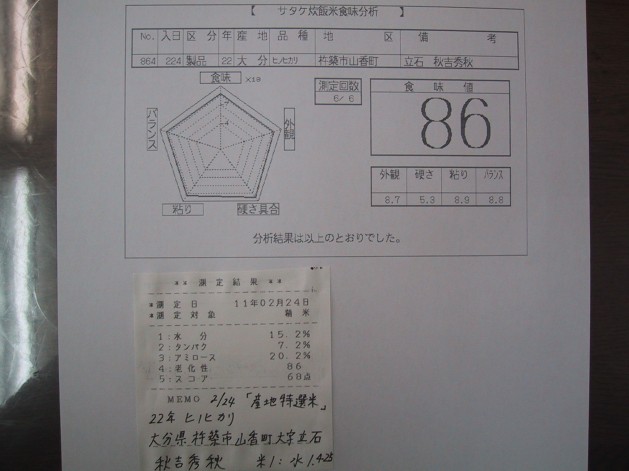 【 サタケ炊飯米食味分析 】
No. 入日 区分 年 産地 品種 地区 備考
864 224 製品 22 大分 ヒノヒカリ 杵築市山香町 立石 秋吉秀秋
食味 ×10
バランス
外観
粘り
硬さ具合
測定回数
6/6
食味値
86
外観 硬さ 粘り バランス
8.7 5.3 8.9 8.8
分析結果は以上のとおりでした。
** 測定結果 **
*測定日 11年02月24日
*測定対象 精米
1:水分 15.2%
2:タンパク 7.2%
3:アミロース 20.2%
4:老化性 86
5:スコア 68点
MEMO 2/24 「産地特選米」
22年 ヒノヒカリ
大分県杵築市山香町大字立石
秋吉秀秋 米1:水1.425